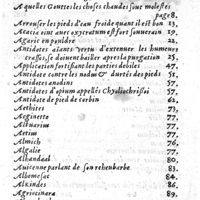 A quelles Gouttes les choses chaudes sont molestes
page 8.
Arrouser les pieds d'eau froide quant il est bon 13,
Acacia oint auec oxycratum est fort souuerain 25,
Agaric en pouldre 22,
Antidotes aians vertu d'extenuer les humeurs
crasses, se doiuent bailler apres la purgation 25,
Application fortifiant les parties debiles 47,
Antidote contre les nodus & durtés des pieds
Antidotes anodins 57,
Antidotes d'opium appellés Chyliochrissoi 57,
Antidote de pied de corbin 62,
Aethites 73,
Aeginette 87,
Altuarium
Aetim 77,
Almich 77,
Algalie 76,
Alhandaal 80,
Auicenne parlant de son rehenbarbe 83,
Albomesac 84,
Alxindes 86,
Agriocinara 89,